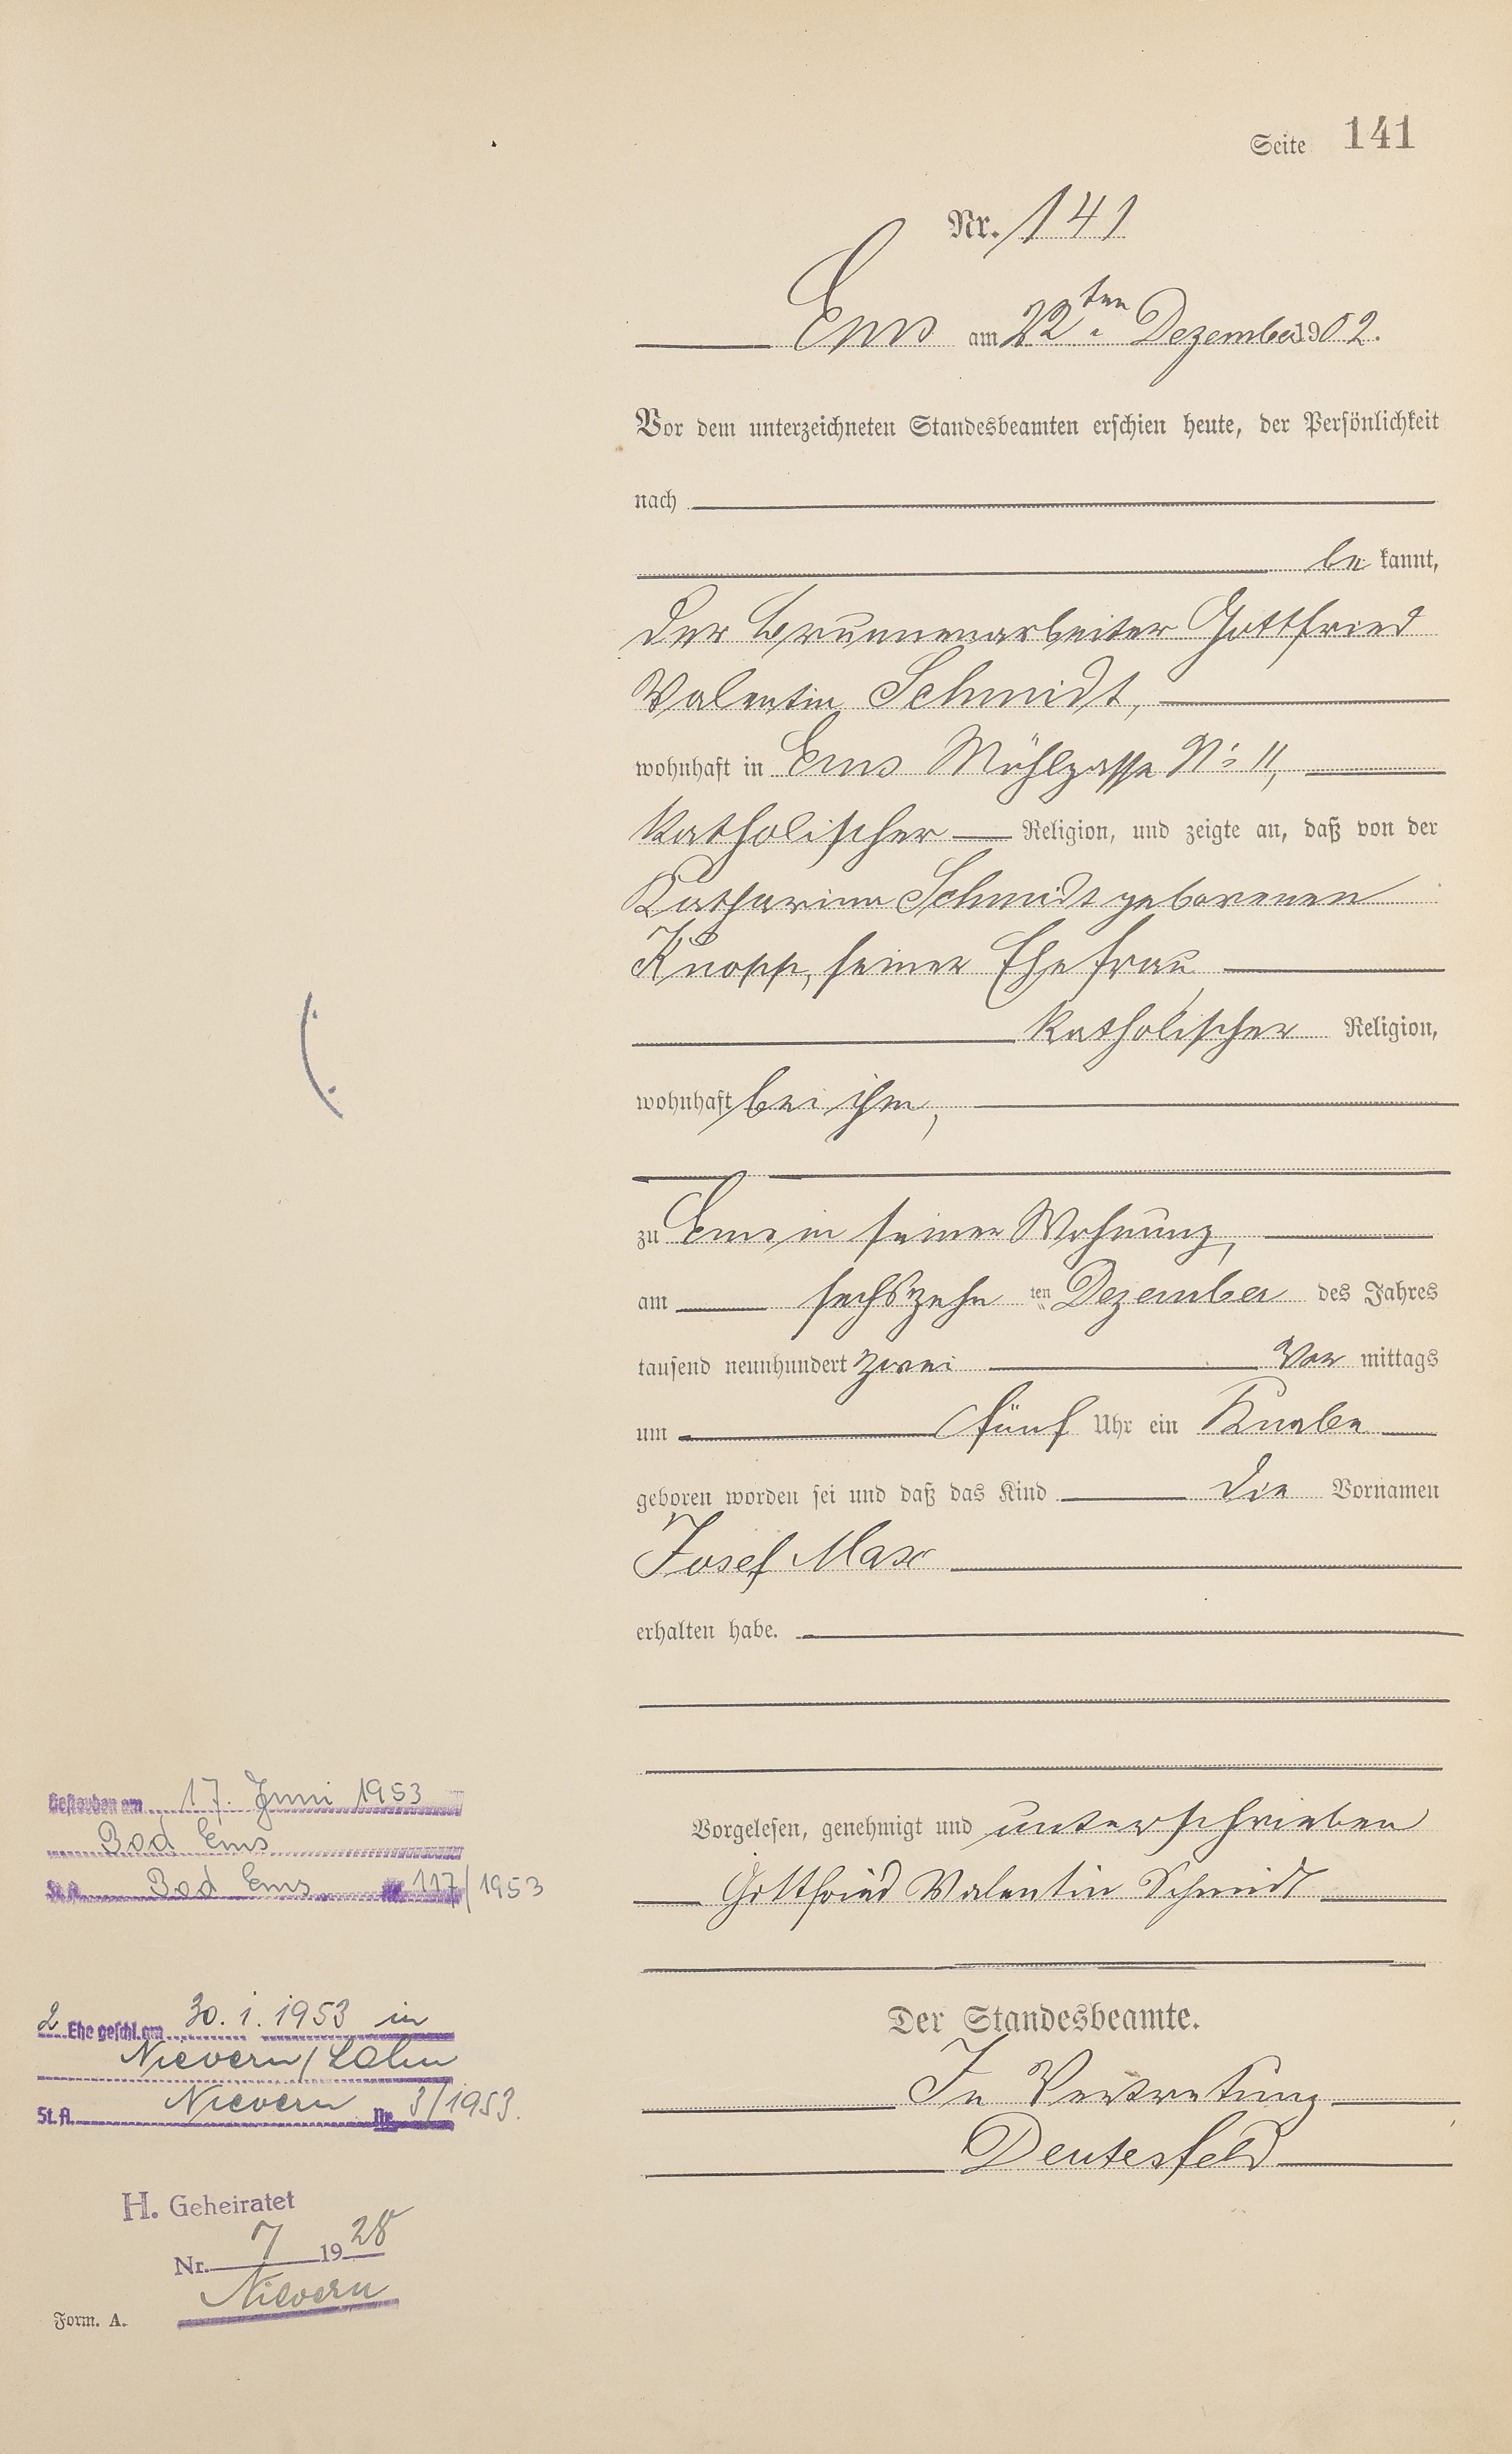 Seite 141
Nr. 141
Ems am 22ten Dezember 1902.
Vor dem unterzeichneten Standesbeamten erschien heute, der Persönlichkeit
nach
be kannt,
der Brunnenarbeiter Gottfried
Valentin Schmidt,
wohnhaft in Ems Mühlgasse No 11,
katholischer Religion, und zeigte an, daß von der
Katharina Schmidt geborenen
Knopp, seiner Ehefrau
katholischer Religion,
wohnhaft bei ihm,
zu Ems in seiner Wohnung,
am sechszehn ten Dezember des Jahres
tausend neunhundert zwei Vor mittags
um fünf Uhr ein Knabe
geboren worden sei und daß das Kind die Vornamen
Josef Max
erhalten habe.
Vorgelesen, genehmigt und unterschrieben
Gottfried Valentin Schmidt
Der Standesbeamte.
In Vertretung
Deutesfeld
Gestorben am 17. Juni 1953
Bad Ems
St. A. Bad Ems Nr. 117/1953
2 Ehe geschl. am 30. 1. 1953 in
Nievern/Lahn
St. A. Nievern Nr. 3/1953.
H. Geheiratet
Nr. 7 1928
Nievern
Form. A.